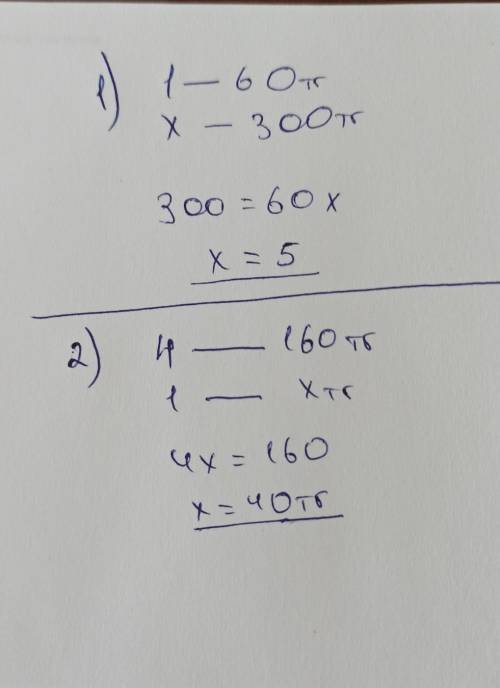 1) 1 — 60 тг
x — 300 тг
300 = 60 x
x = 5
2) 4 — 160 тг
1 — x тг
4x = 160
x = 40 тг